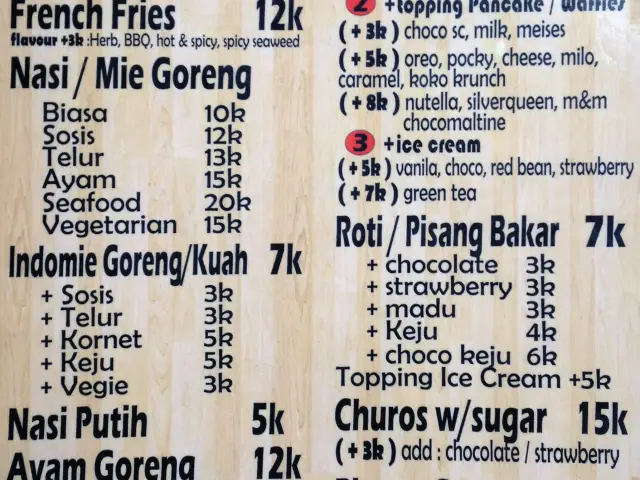 French Fries 12k
flavour +3k :Herb, BBQ, hot & spicy, spicy seaweed
Nasi / Mie Goreng
Biasa 10k
Sosis 12k
Telur 13k
Ayam 15k
Seafood 20k
Vegetarian 15k
Indomie Goreng/Kuah 7k
+ Sosis 3k
+ Telur 3k
+ Kornet 5k
+ Keju 5k
+ Vegie 3k
Nasi Putih 5k
Ayam Goreng 12k
2 +topping Pancake / Waffles
(+3k) choco sc, milk, meises
(+5k) oreo, pocky, cheese, milo,
caramel, koko krunch
(+8k) nutella, silverqueen, m&m
chocomaltine
3 +ice cream
(+5k) vanila, choco, red bean, strawberry
(+7k) green tea
Roti / Pisang Bakar 7k
+ chocolate 3k
+ strawberry 3k
+ madu 3k
+ Keju 4k
+ choco keju 6k
Topping Ice Cream +5k
Churos w/sugar 15k
(+3k) add : chocolate / strawberry